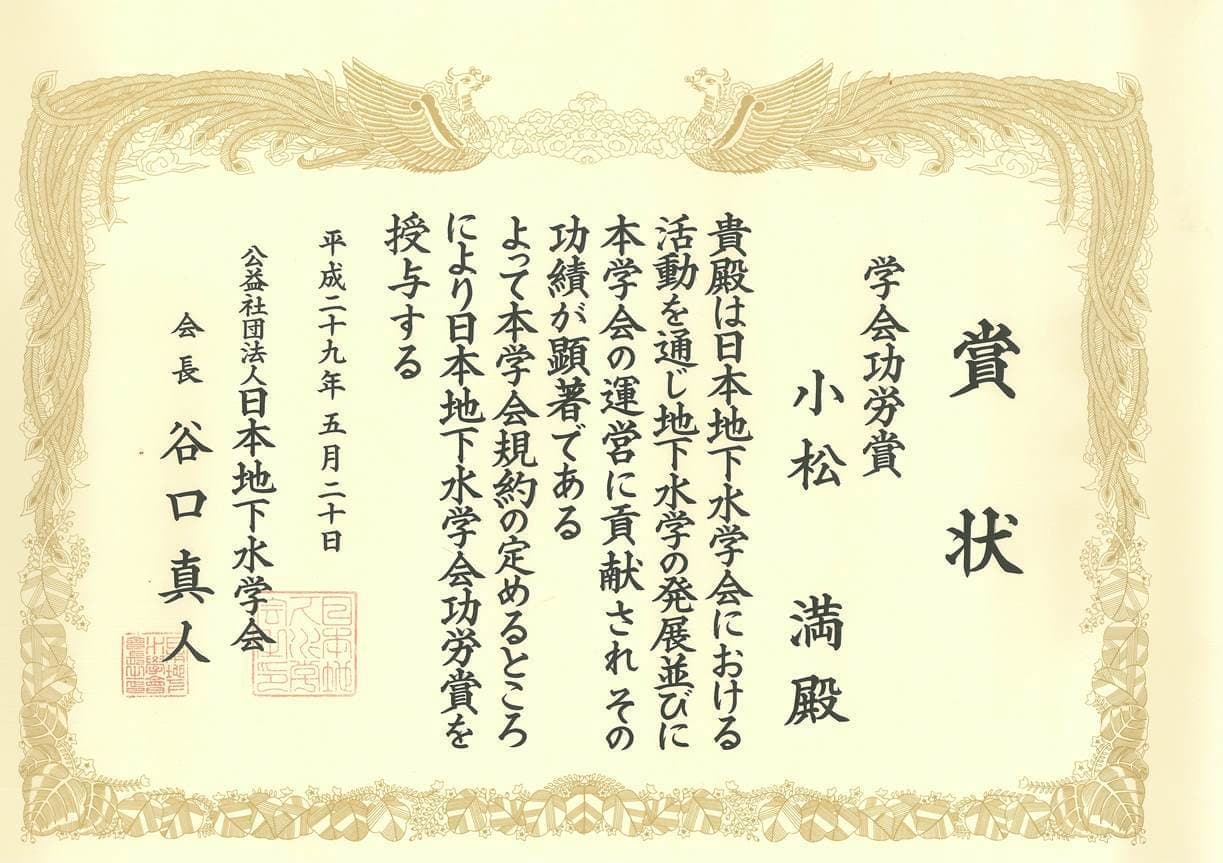 賞状
学会功労賞
小松 満殿
貴殿は日本地下水学会における
活動を通じ地下水学の発展並びに
本学会の運営に貢献され その
功績が顕著である
よって本学会規約の定めるところ
により日本地下水学会功労賞を
授与する
平成二十九年五月二十日
公益社団法人日本地下水学会
会長 谷口真人